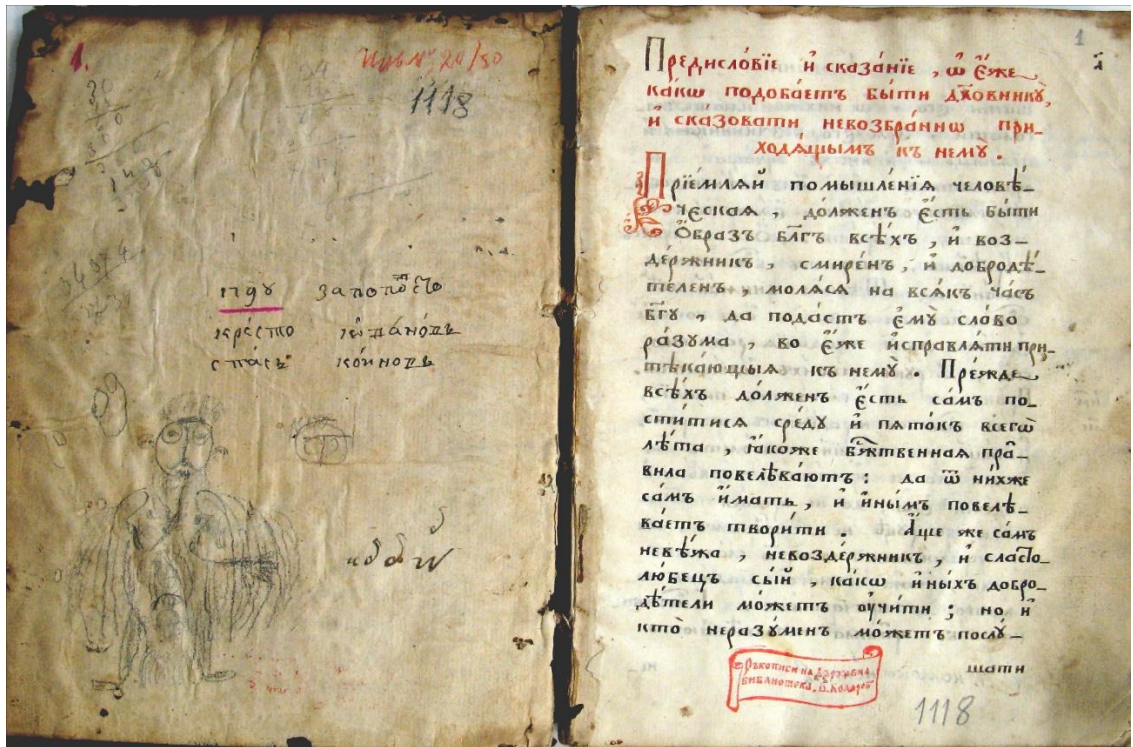 1.
Инв№ 20/50
1118
крⷭ҇то
спасъ
1
Предисло́вїе и҆ сказа́нїе , ѡ҆ є҆́же
ка́кѡ подоба́етъ бы́ти дꙋхо́вникꙋ̀,
и҆ сказовати невозбра́ннѡ при-
ходѧ́щымъ къ немꙋ̀ .
Прїе́млѧй помышле́нїѧ человѣ́-
ческаѧ , до́лженъ є҆́сть бы́ти
ѻ҆́бразъ бл҃гъ всѣ́хъ , и҆ воз-
де́ржникъ , смире́нъ , и҆ доброде́-
теленъ , молѧ́сѧ на всѧ́къ ча́съ
бг҃ꙋ , да пода́стъ є҆мꙋ̀ сло́во
ра́зꙋма , во є҆́же и҆справлѧ́ти при-
тека́ющыѧ къ немꙋ̀ . Пре́жде
всѣ́хъ до́лженъ є҆́сть са́мъ по-
сти́тисѧ сре́дꙋ и҆ пѧто́къ всегѡ̀
лѣ́та , ꙗ҆́коже бж҃твеннаѧ пра́-
вила повелѣва́ютъ : да ѿ ни́хже
са́мъ и҆́мать , и҆ и҆ны́мъ повелѣ-
ва́етъ твори́ти . А҆́ще же са́мъ
невѣ́жа , невозде́ржникъ , и҆ сласто-
лю́бецъ сы́й , ка́кѡ и҆ны́хъ добро-
дѣ́тели мо́жетъ ᲂу҆чи́ти ; но и҆
кто̀ неразꙋ́менъ мо́жетъ послꙋ́-
шати
Ръкописи на Държавна
библиотека „В. Коларов“
1118